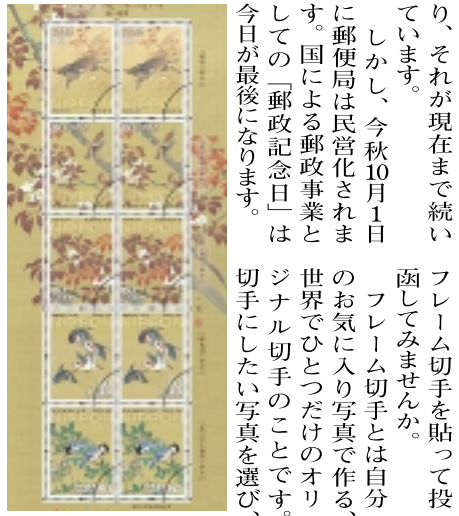 り、それが現在まで続い
ています。
しかし、今秋10月1日
に郵便局は民営化されま
す。国による郵政事業と
しての「郵政記念日」は
今日が最後になります。
フレーム切手を貼って投
函してみませんか。
フレーム切手とは自分
のお気に入り写真で作る、
世界でひとつだけのオリ
ジナル切手のことです。
切手にしたい写真を選び、